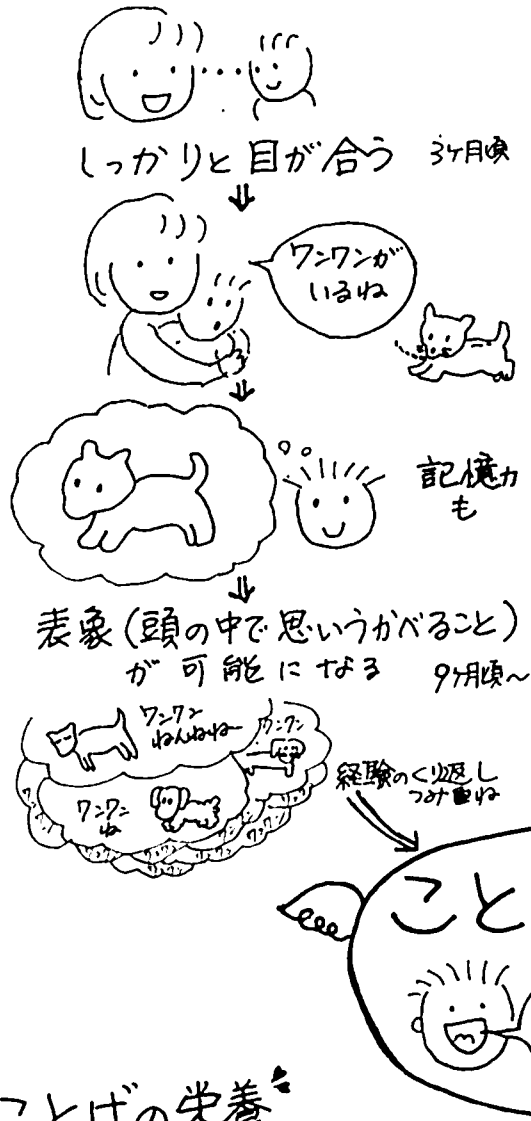 しっかりと目が合う 3ヶ月頃
ワンワンが
いるね
記憶力
も
表象(頭の中で思いうかべること)
が可能になる 9ヶ月頃〜
ワンワン
ねんねねー
ワンワン
ワンワン
ね
経験のくり返し
つみ重ね
こと
ことばの栄養